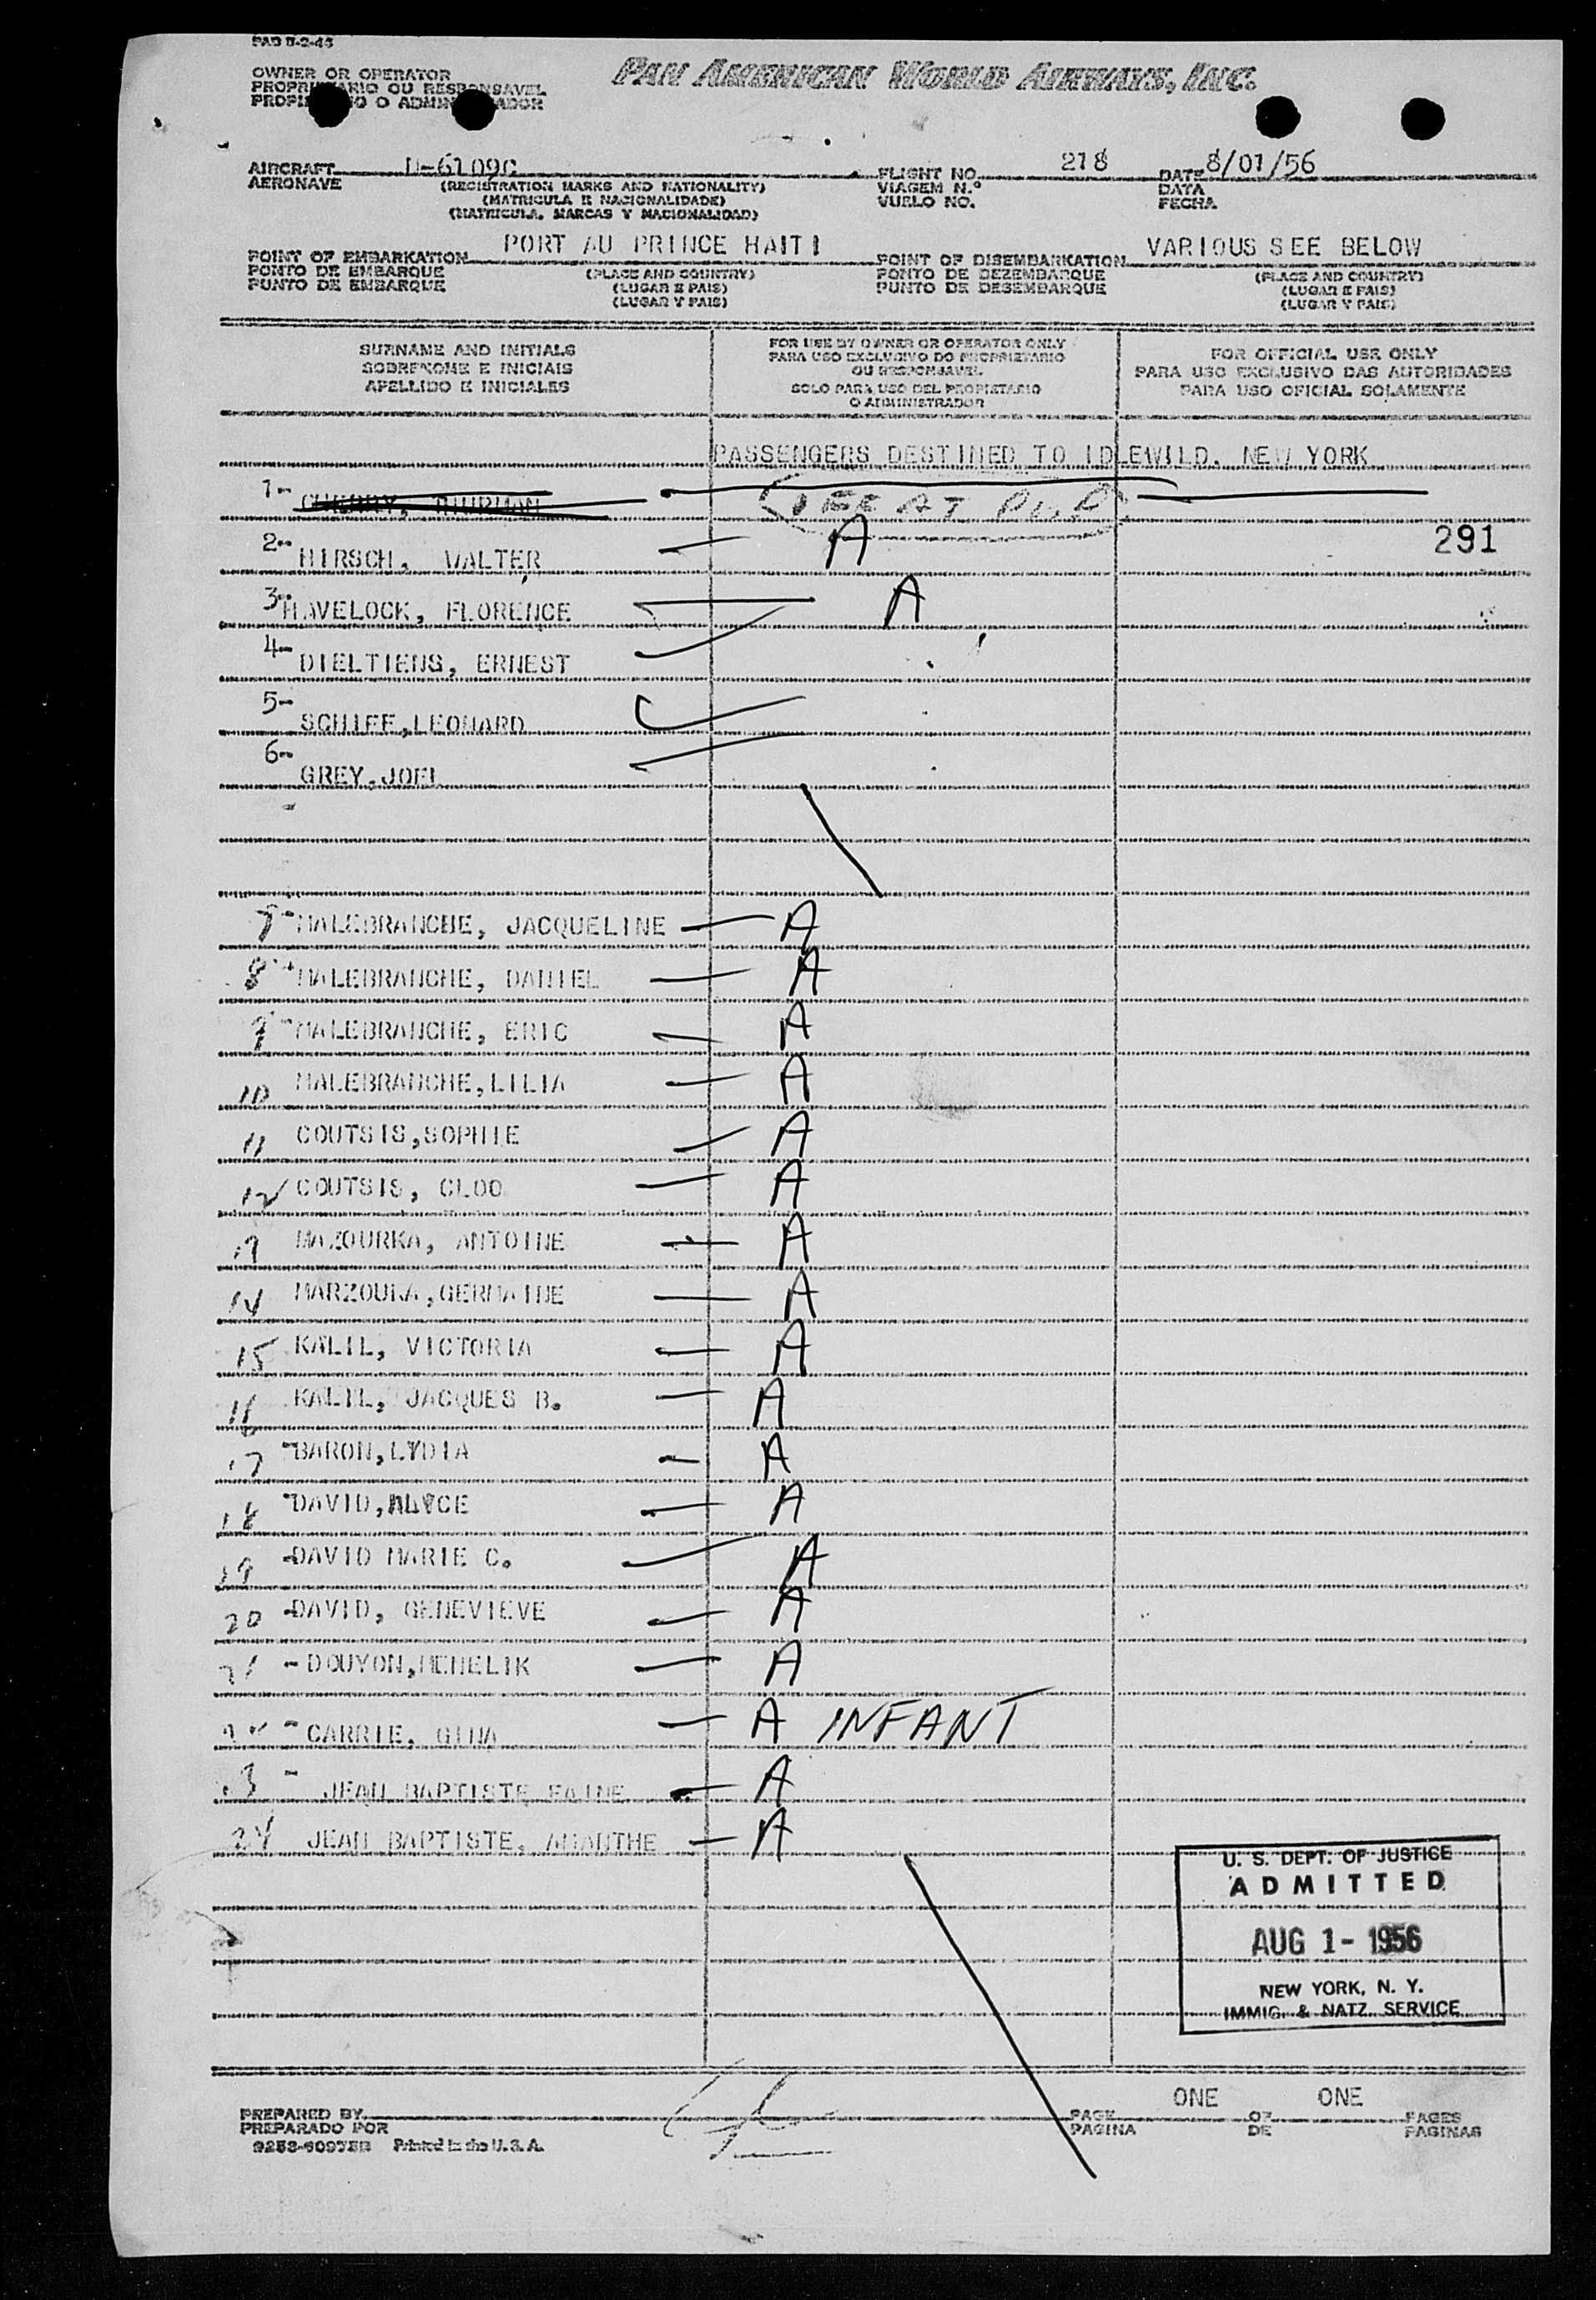 PAB D-2-46
OWNER OR OPERATOR
OU RESPONSAVEL
O
PAN AMERICAN WORLD AIRWAYS, INC.
AIRCRAFT N-6109C FLIGHT NO. 218 DATE 8/01/56
AERONAVE (REGISTRATION MARKS AND NATIONALITY) VIAGEM N.º DATA
(MATRICULA E NACIONALIDADE) VUELO NO. FECHA
(MATRICULA, MARCAS Y NACIONALIDAD)
POINT OF EMBARKATION PORT AU PRINCE HAITI POINT OF DISEMBARKATION VARIOUS SEE BELOW
PONTO DE EMBARQUE (PLACE AND COUNTRY) PONTO DE DEZEMBARQUE (PLACE AND COUNTRY)
PUNTO DE EMBARQUE (LUGAR E PAIS) PUNTO DE DESEMBARQUE (LUGAR E PAIS)
(LUGAR Y PAIS) (LUGAR Y PAIS)
SURNAME AND INITIALS
SOBRENOME E INICIAIS
APELLIDO E INICIALES
FOR USE BY OWNER OR OPERATOR ONLY
PARA USO EXCLUSIVO DO PROPRIETARIO
OU RESPONSAVEL
SOLO PARA USO DEL PROPIETARIO
O ADMINISTRADOR
FOR OFFICIAL USE ONLY
PARA USO EXCLUSIVO DAS AUTORIDADES
PARA USO OFICIAL SOLAMENTE
PASSENGERS DESTINED TO IDLEWILD. NEW YORK
1-
2- HIRSCH, WALTER A 291
3- HAVELOCK, FLORENCE A
4- DIELTIENS, ERNEST
5- SCHIFF,LEONARD
6- GREY,JOEL
7- MALEBRANCHE, JACQUELINE A
8- MALEBRANCHE, DANIEL A
9- MALEBRANCHE, ERIC A
10 MALEBRANCHE,LILIA A
11 COUTSIS,SOPHIE A
12 COUTSIS, CLOO A
13 MAZOURKA, ANTOINE A
14 MARZOUKA,GERMAINE A
15 KALIL, VICTORIA A
16 KALIL, JACQUES B. A
17 -BARON,LYDIA A
18 -DAVID,ALYCE A
19 -DAVID MARIE C. A
20 -DAVID, GENEVIEVE A
21 -DOUYON,MENELIK A
22 -CARRIE, GINA A INFANT
3 - JEAN BAPTISTE A
24 JEAN BAPTISTE, AMANTHE A
U. S. DEPT. OF JUSTICE
ADMITTED
AUG 1- 1956
NEW YORK, N. Y.
IMMIG. & NATZ. SERVICE
PREPARED BY PAGE ONE OF ONE PAGES
PREPARADO POR PAGINA DE PAGINAS
Printed in the U.S.A.